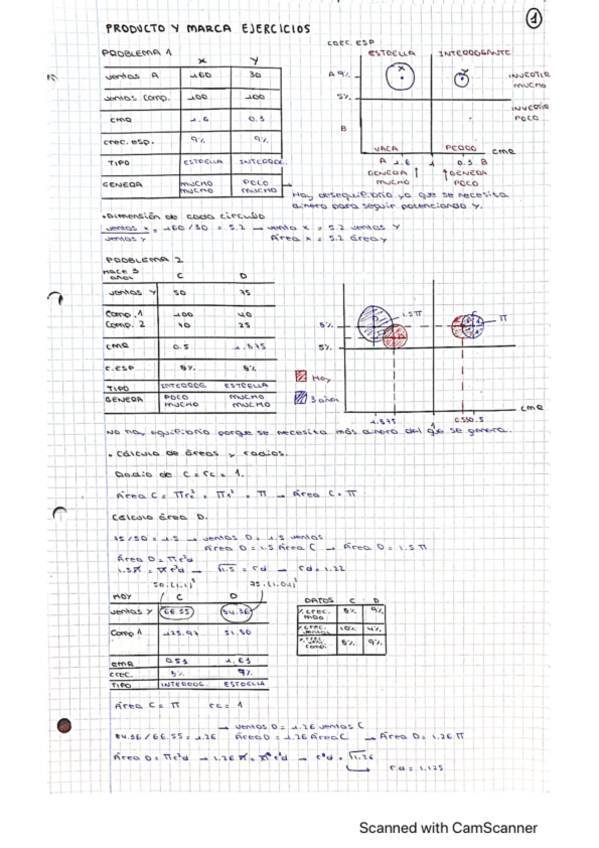 PRODUCTO Y MARCA EJERCICIOS
1
PROBLEMA 1
X Y
ventas A 160 30
ventas comp. 100 100
CMR 1.6 0.3
crec. esp. 9% 9%
TIPO ESTRELLA INTERROG.
GENERA MUCHO POCO
MUCHO MUCHO
CREC. ESP
ESTRELLA INTERROGANTE
A 9%
X
Y
INVERTIR
MUCHO
5%
B
INVERTIR
POCO
VACA PERRO CMR
A 1.6 1 0.3 B
GENERA GENERA
MUCHO POCO
Hay desequilibrio ya que se necesita
dinero para seguir potenciando Y.
• Dimensión de cada círculo
ventas x = 160/30 = 5.2 → venta x = 5.2 ventas Y
ventas y Área x = 5.2 área y
PROBLEMA 2
HACE 3
años C D
ventas Y 50 75
Comp. 1 100 40
Comp. 2 25
CMR 0.5 1.875
C. ESP
TIPO INTERROG. ESTRELLA
GENERA POCO MUCHO
MUCHO MUCHO
1.5π
π
5%
Hoy
3 años
CMR
1.875 1
No hay equilibrio porque se necesita más dinero del que se genera.
• Cálculo de áreas y radios.
Radio de C = rc = 1.
Área C = πrc² = π1² = π → Área C = π
Cálculo área D.
75/50 = 1.5 → ventas D = 1.5 ventas
Área D = 1.5 Área C → Área D = 1.5π
Área D = πr²d
1.5π = πr²d → √1.5 = rd → rd = 1.22
50.(1.1)³ 75.(1.04)³
HOY C D
ventas Y 66.55 84.36
Comp A 51.80
CMR 1.63
CREC. 5% 9%
TIPO INTERROG. ESTRELLA
DATOS C D
% CREC. 5% 9%
% CREC. 10% 4%
5% 9%
Área C = π rc = 1
→ ventas D = 1.26 ventas C
84.36/66.55 = 1.26 Área D = 1.26 Área C → Área D = 1.26π
Área D = πr²d → 1.26π = πr²d → r²d = √1.26
rd = 1.125
Scanned with CamScanner